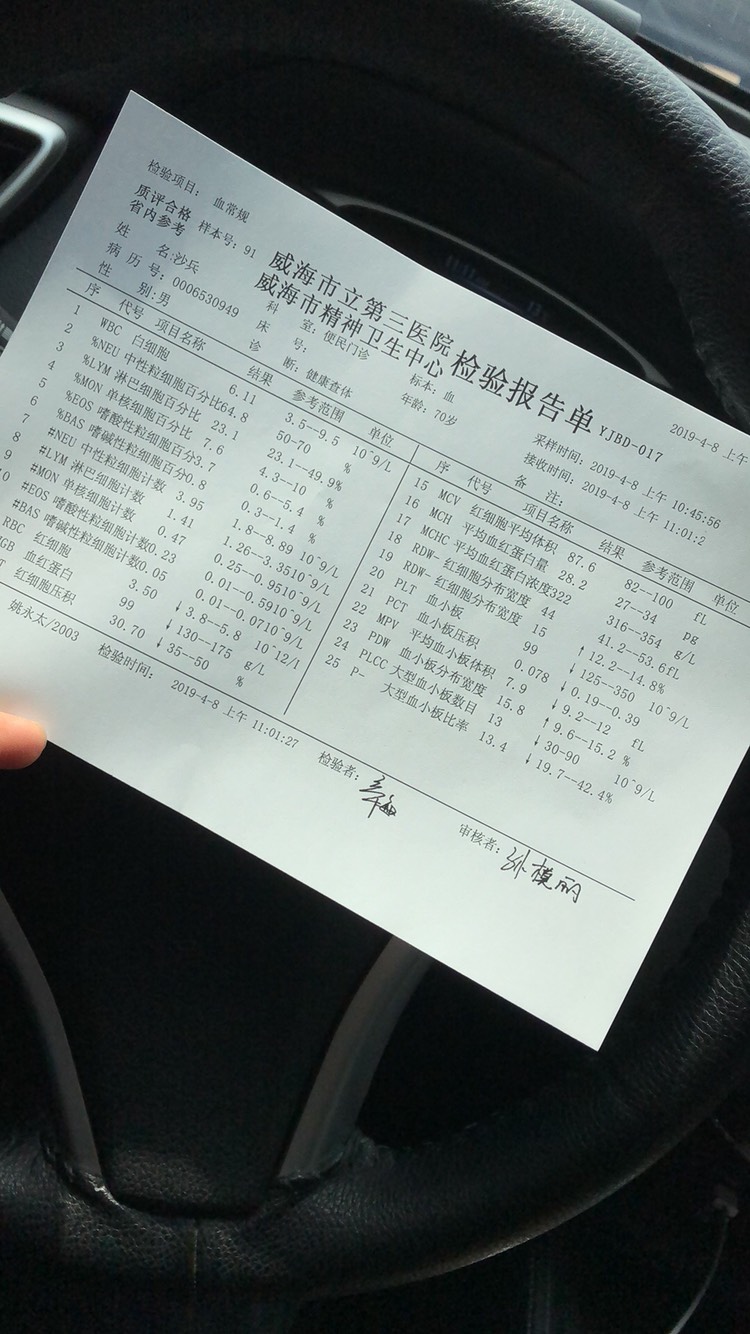 检验项目: 血常规
质评合格 样本号: 91
省内参考
威海市立第三医院
威海市精神卫生中心 检验报告单 YJBD-017
2019-4-8 上午
姓 名:沙兵 科 室: 便民门诊 标本: 血 采样时间: 2019-4-8 上午 10:45:56
病 历 号: 0006530949 床 号: 年龄: 70岁 接收时间: 2019-4-8 上午 11:01:2
性 别:男 诊 断: 健康查体 备 注:
序 代号 项目名称 结果 参考范围 单位
1 WBC 白细胞 6.11 3.5--9.5 10^9/L
2 %NEU 中性粒细胞百分比64.8 50-70 %
3 %LYM 淋巴细胞百分比 23.1 23.1--49.9%
4 %MON 单核细胞百分比 7.6 4.3--10 %
5 %EOS 嗜酸性粒细胞百分3.7 0.6--5.4 %
6 %BAS 嗜碱性粒细胞百分0.8 0.3--1.4 %
7 #NEU 中性粒细胞计数 3.95 1.8--8.89 10^9/L
8 #LYM 淋巴细胞计数 1.41 1.26--3.3510^9/L
9 #MON 单核细胞计数 0.47 0.25--0.9510^9/L
0 #EOS 嗜酸性粒细胞计数0.23 0.01--0.5910^9/L
#BAS 嗜碱性粒细胞计数0.05 0.01--0.0710^9/L
RBC 红细胞 3.50 ↓3.8--5.8 10^12/l
HGB 血红蛋白 99 ↓130--175 g/L
T 红细胞压积 30.70 ↓35--50 %
序 代号 项目名称 结果 参考范围 单位
15 MCV 红细胞平均体积 87.6 82--100 fL
16 MCH 平均血红蛋白量 28.2 27--34 pg
17 MCHC 平均血红蛋白浓度322 316--354 g/L
18 RDW- 红细胞分布宽度 44 41.2--53.6fL
19 RDW- 红细胞分布宽度 15 ↑12.2--14.8%
20 PLT 血小板 99 ↓125--350 10^9/L
21 PCT 血小板压积 0.078 ↓0.19--0.39
22 MPV 平均血小板体积 7.9 ↓9.2--12 fL
23 PDW 血小板分布宽度 15.8 ↑9.6--15.2 %
24 PLCC 大型血小板数目 13 ↓30-90 10^9/L
25 P- 大型血小板比率 13.4 ↓19.7--42.4%
姚永太/2003 检验时间: 2019-4-8 上午 11:01:27 检验者: 审核者: 孙模丽